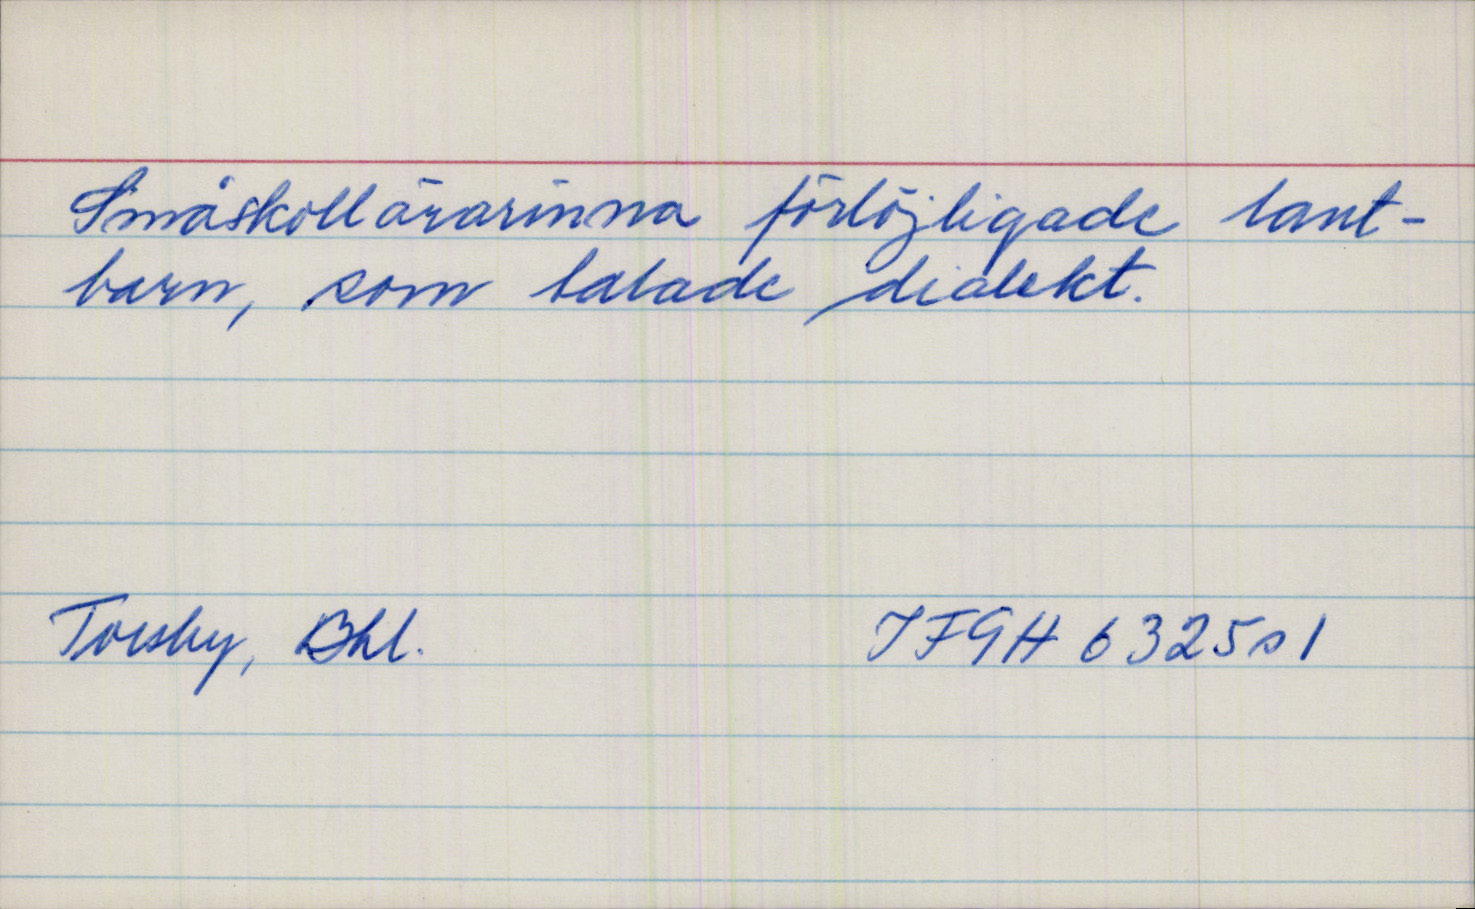 Småskollärarinna förlöjligade lant-
barn, som talade dialekt.
Torsby, Bhl.
IFGH 6325 s 1